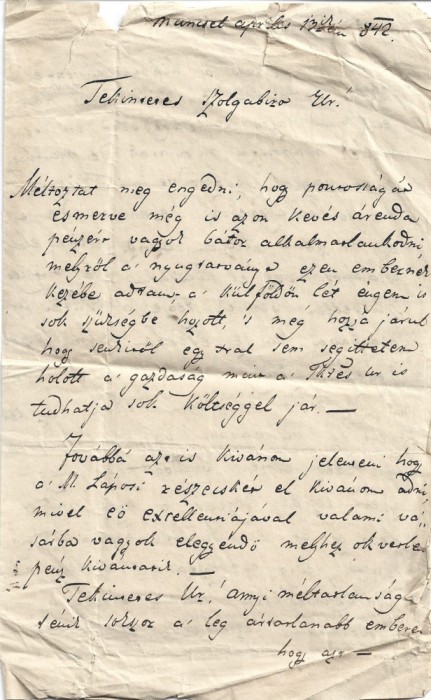 Muncsel április 13ikán 842.
Tekintetes Szolgabiro Ur!
Méltoztat meg engedni, hogy pontosságát
esmerve még is azon kevés árenda
pénzért vagyok bátor alkalmatlankodni
melyről a' nyugtatványt ezen embernek
kezébe adtam, a' külföldön lét engem is
sok szükségbe hozott, 's még hozzá járul
hogy senkitől egy ... sem segittetem
holott a' gazdaság mint a' Ttes Ur is
tudhatja sok költséggel jár. —
Továbbá azt is kivánom jelenteni hogy
a' M. Láposi részecskét el kivánom adni,
mivel eö excellentiájával valami vá-
sárba vagyok elegyendö melyhez okvetlen
pénz kivántatik. —
Tekintetes Ur! annyi méltatlanságot
... sokszor a' leg ártatlanabb ember
hogy azt —